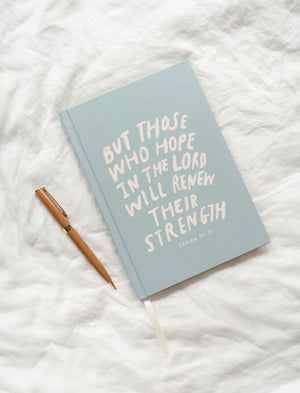 BUT THOSE
WHO HOPE
IN THE LORD
WILL RENEW
THEIR
STRENGTH